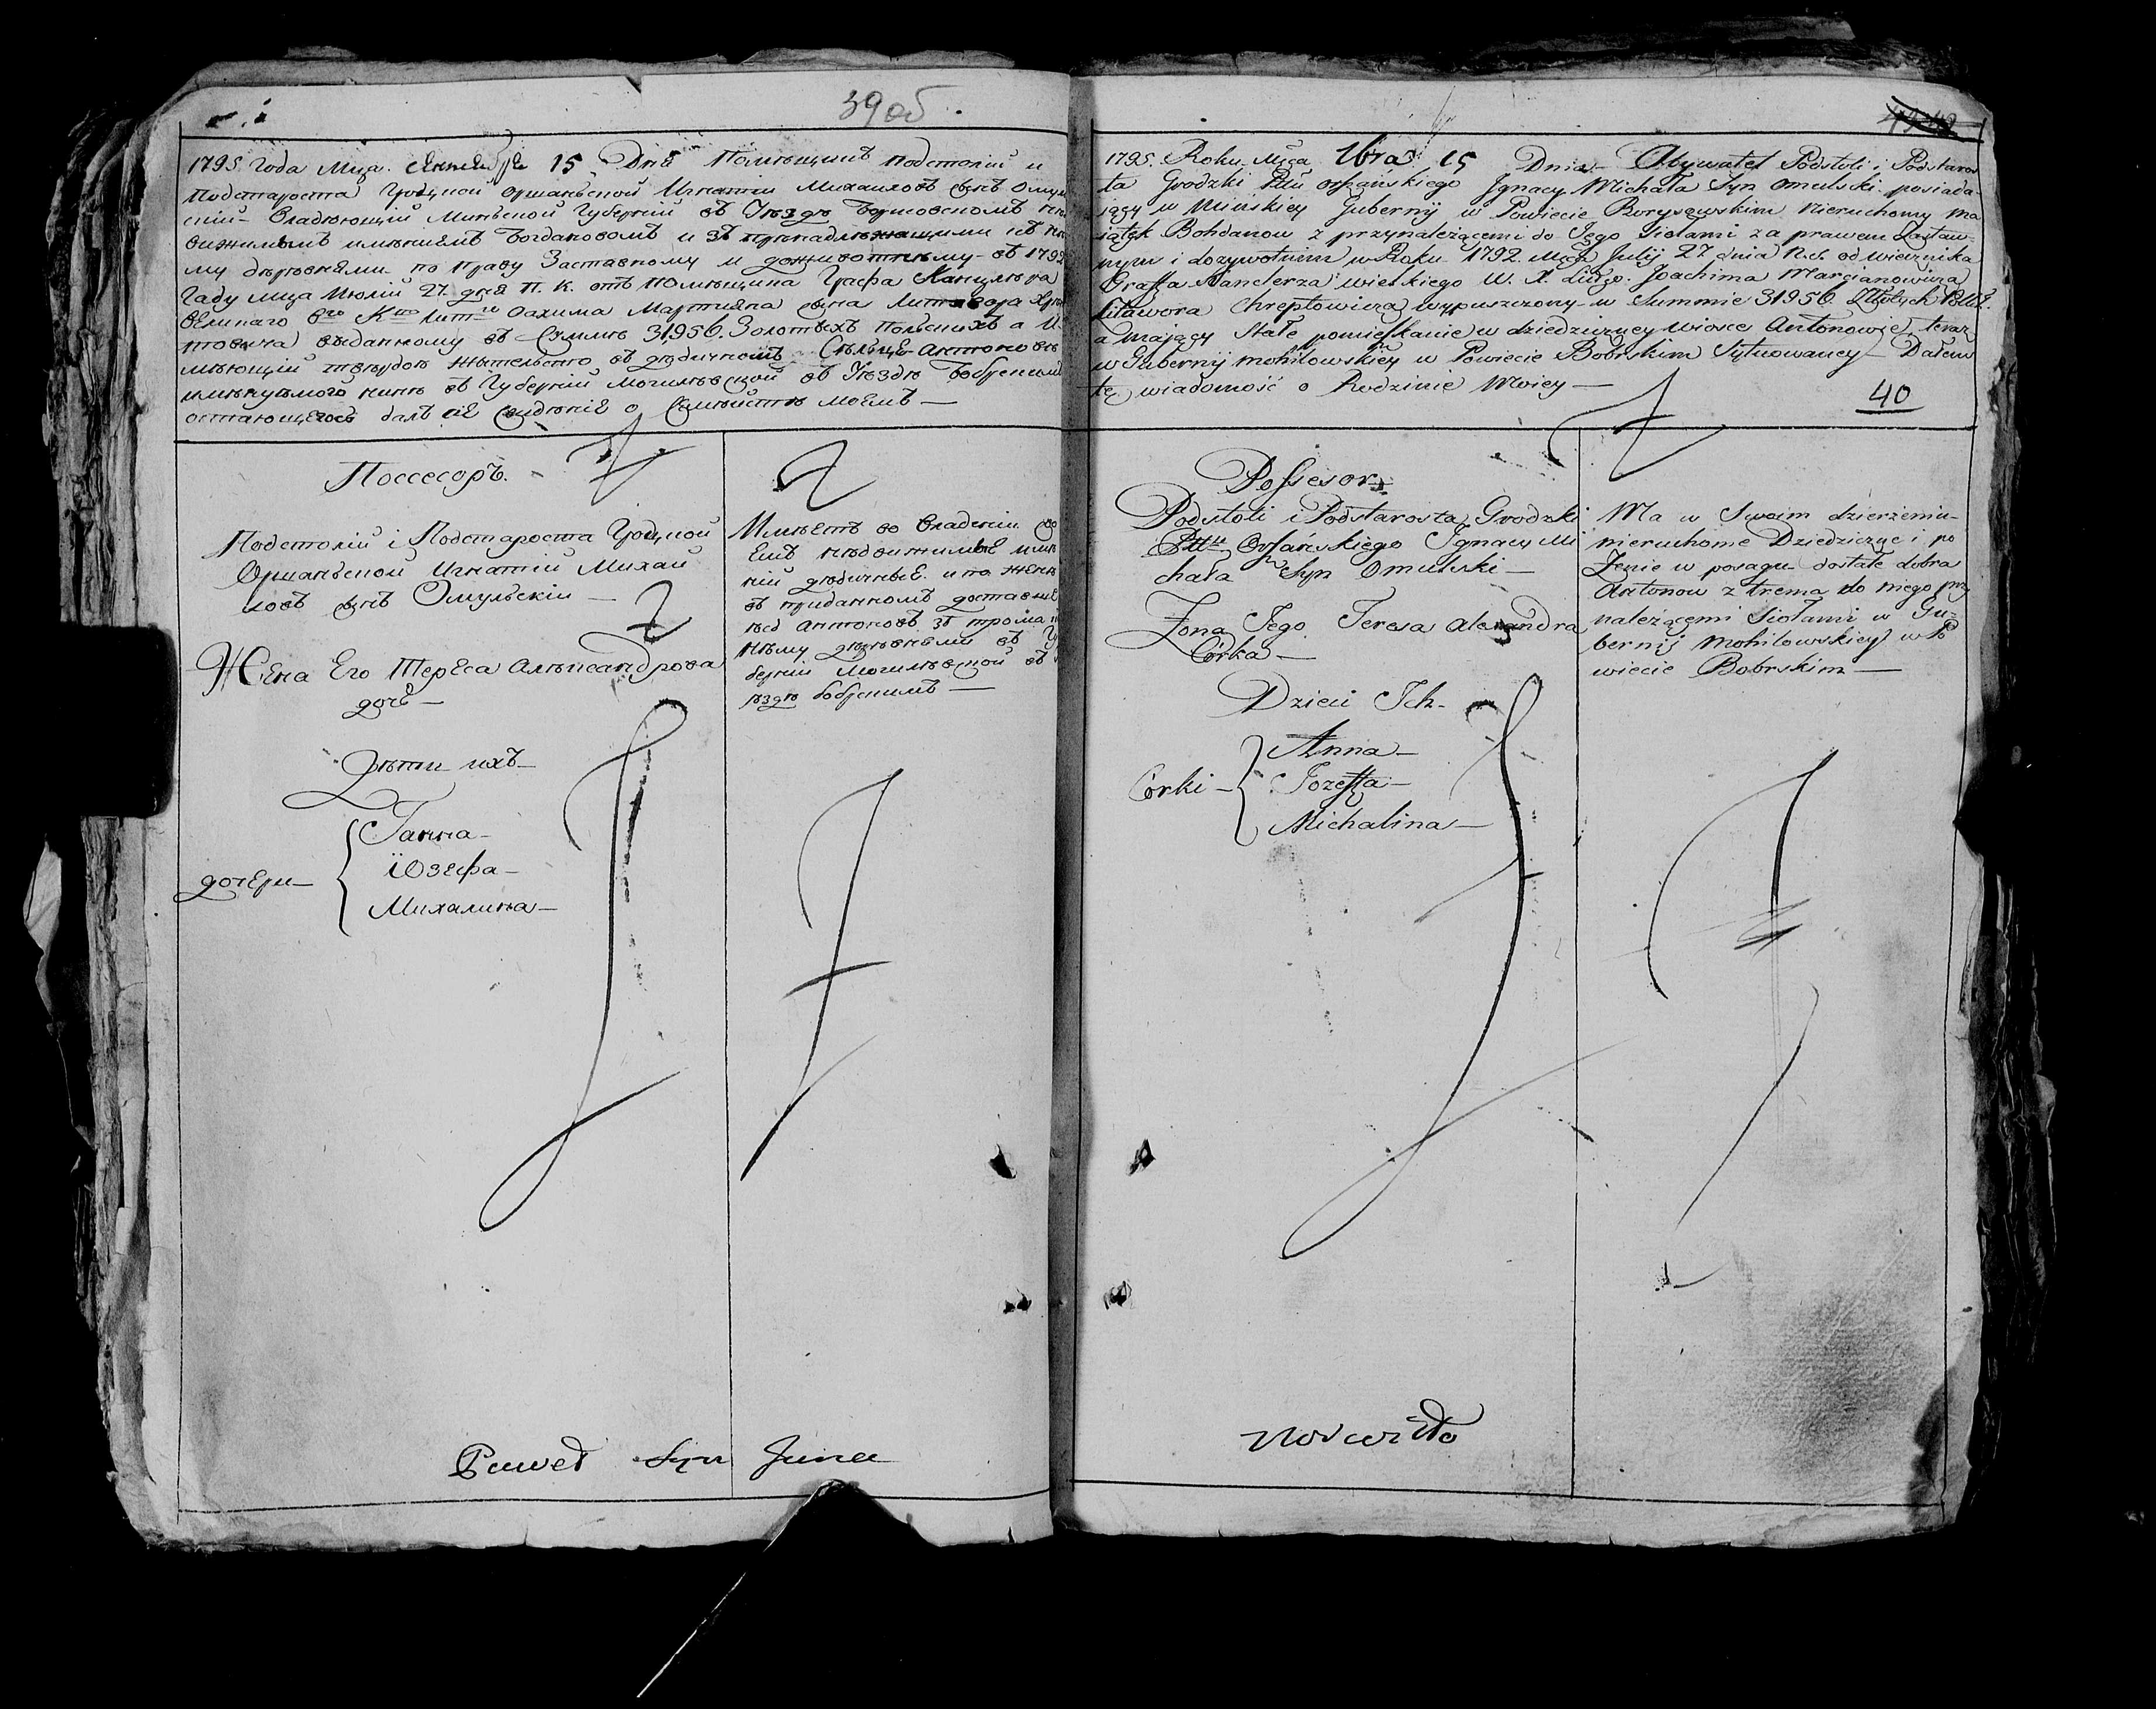 39 об.
1795 года Мца. Сентебре 15 Дня Помѣщикъ подстолій и
Подстароста Гродцкой Оршанской Игнатій Михаиловъ сынъ Омул
скій Владѣющій Минской Губерній въ Уѣздѣ Борисовскомъ не
движимымъ имѣніемъ Богдановомъ и зъ принадлежащими къ не
му деревнями по праву Заставному и доживотнему въ 1792
Гаду мца Июлій 27. дня П. К. отъ Помѣщика Графа Канцлера
Великаго Іоахима Мартияна сына Литавора Хреп
товича выданному въ Суммѣ 31956. Золотыхъ Польскихъ а И
мѣющій твердое жительство въ дѣдичномъ Сельце Антонове
въ Губерній Могилевской въ Уѣздѣ Бобрскимъ
остающегось далъ сіе свѣдѣніе о Семействѣ моемъ —
Поссесоръ.
Подстолій і Подстароста Гродцкой
Оршанской Игнатій Михай
ловъ сынъ Омульскій —
Жена Его Тереса Александрова
дочь —
Дѣти ихъ —
дочери —
Ганна —
іОзефа —
Михалина —
Имѣетъ во Владеніи сво
емъ недвижимые имѣ
ній дѣдичные. и по жене
въ приданномъ доставше
Антоновъ зъ трома
нему деревнеми въ Гу
берній Могилевской въ У
ѣздѣ Бобрскимъ —
Paweł Syn Jana
40
1795. Roku Mca 7bra 15 Dnia Obywatel Podstoli i Podstaros
ta Grodzki Pttu Orszańskiego Jgnacy Michała Syn Omulski posiada
iący w Minskiey Gubernij w Powiecie Borysowskim Nieruchomy ma
iątek Bohdanow z przynależącemi do Jego Siołami za prawem Zastaw
nym i dożywotnim w Roku 1792. Mca Julij 27 dnia od Wieczníka
Graffa Kanclerza wielkiego W. X. Litgo. Joachima Marcianowicza
Litawora Chreptowicza wypuszczony w Summie 31956. Złłotych Pollch.
a maiący Stałe pomieszkanie w dziedziczney wiosce Antonowie teraz
w Gubernij mohilowskiey w Powiecie Bobrskim Sytuowaney — Dałem
tę wiadomość o Rodzinie Moiey —
Possesor
Podstoli i Podstarosta Grodzki
Pttu Orszańskiego Jgnacy Mi
chała Syn Omulski —
Żona Jego Teresa Alexandra
Córka —
Dzieci Jch —
Corki —
Anna —
Jozeffa —
Michalina —
Ma w Swoim dzierżeniu
nieruchome Dziedziczne i po
Żenie w posagu dostałe dobra
Antonow z trema do niego przy
należącemi Siołami w Gu
bernij Mohilowskiey w Po
wiecie Bobrskim —